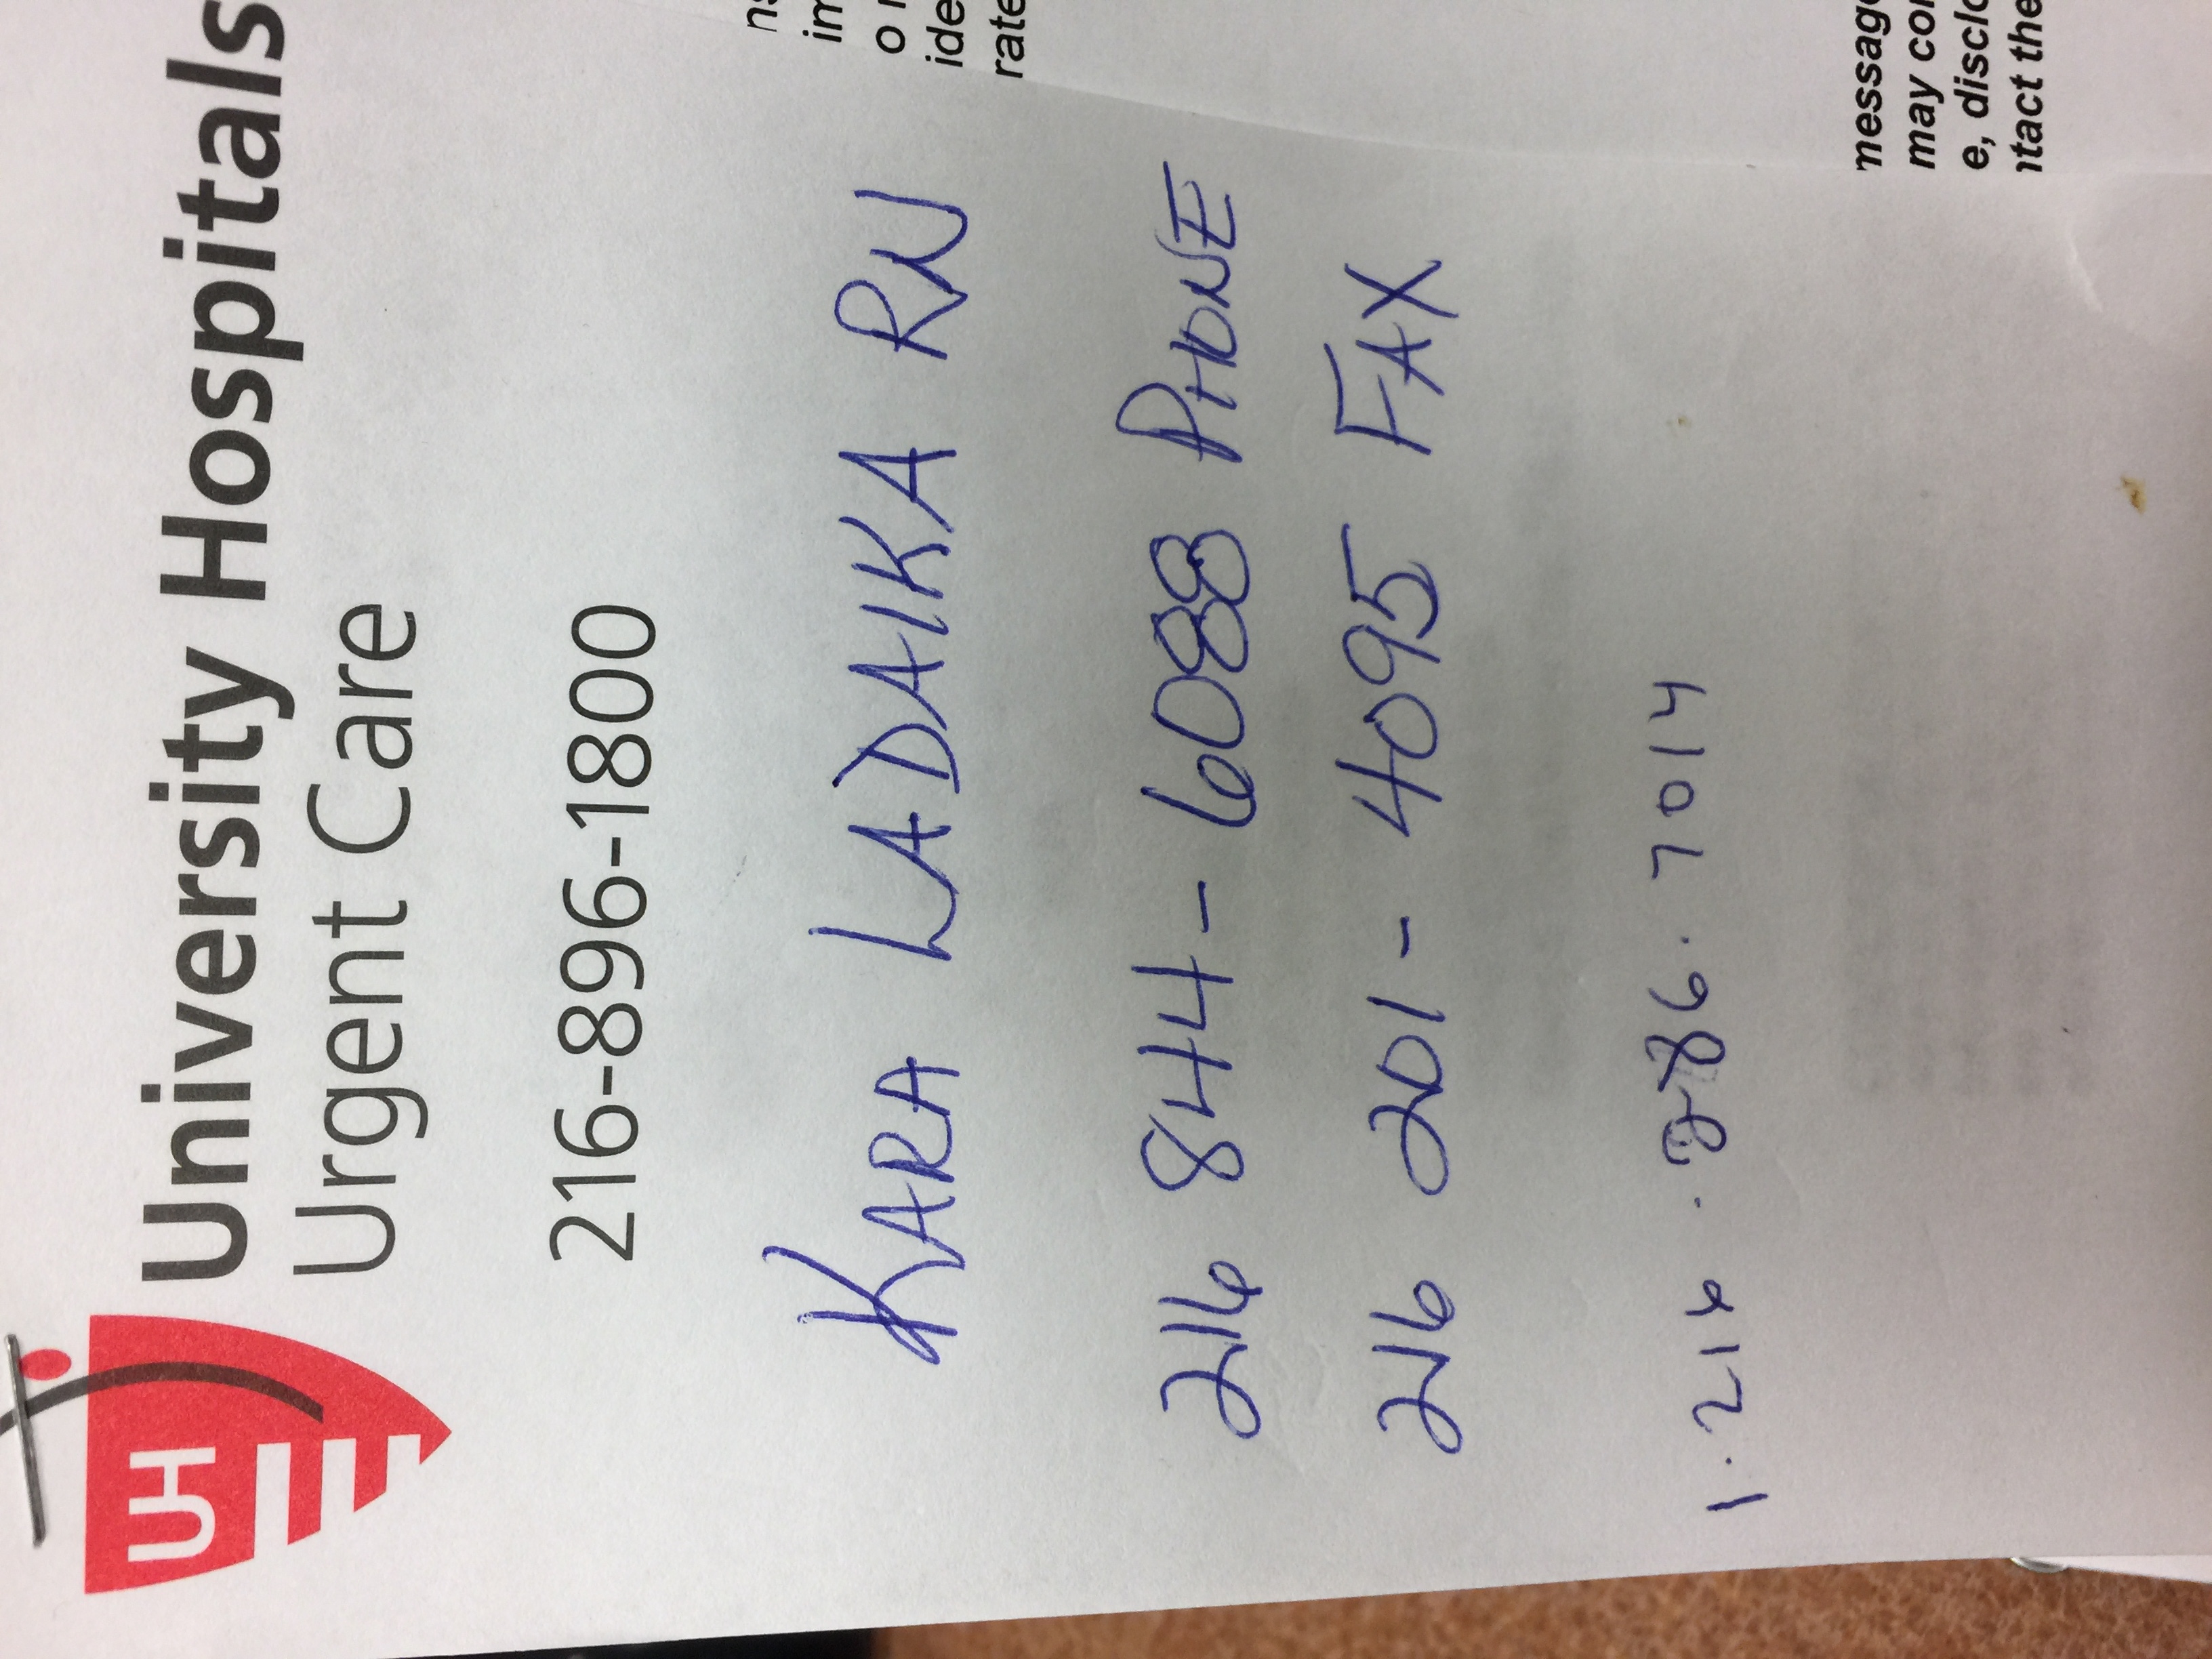 UH
University Hospitals
Urgent Care
216-896-1800
KARA LADAIKA RN
216 844-6088 PHONE
216 201-4095 FAX
1.216.286.7014
message
may
e,
the